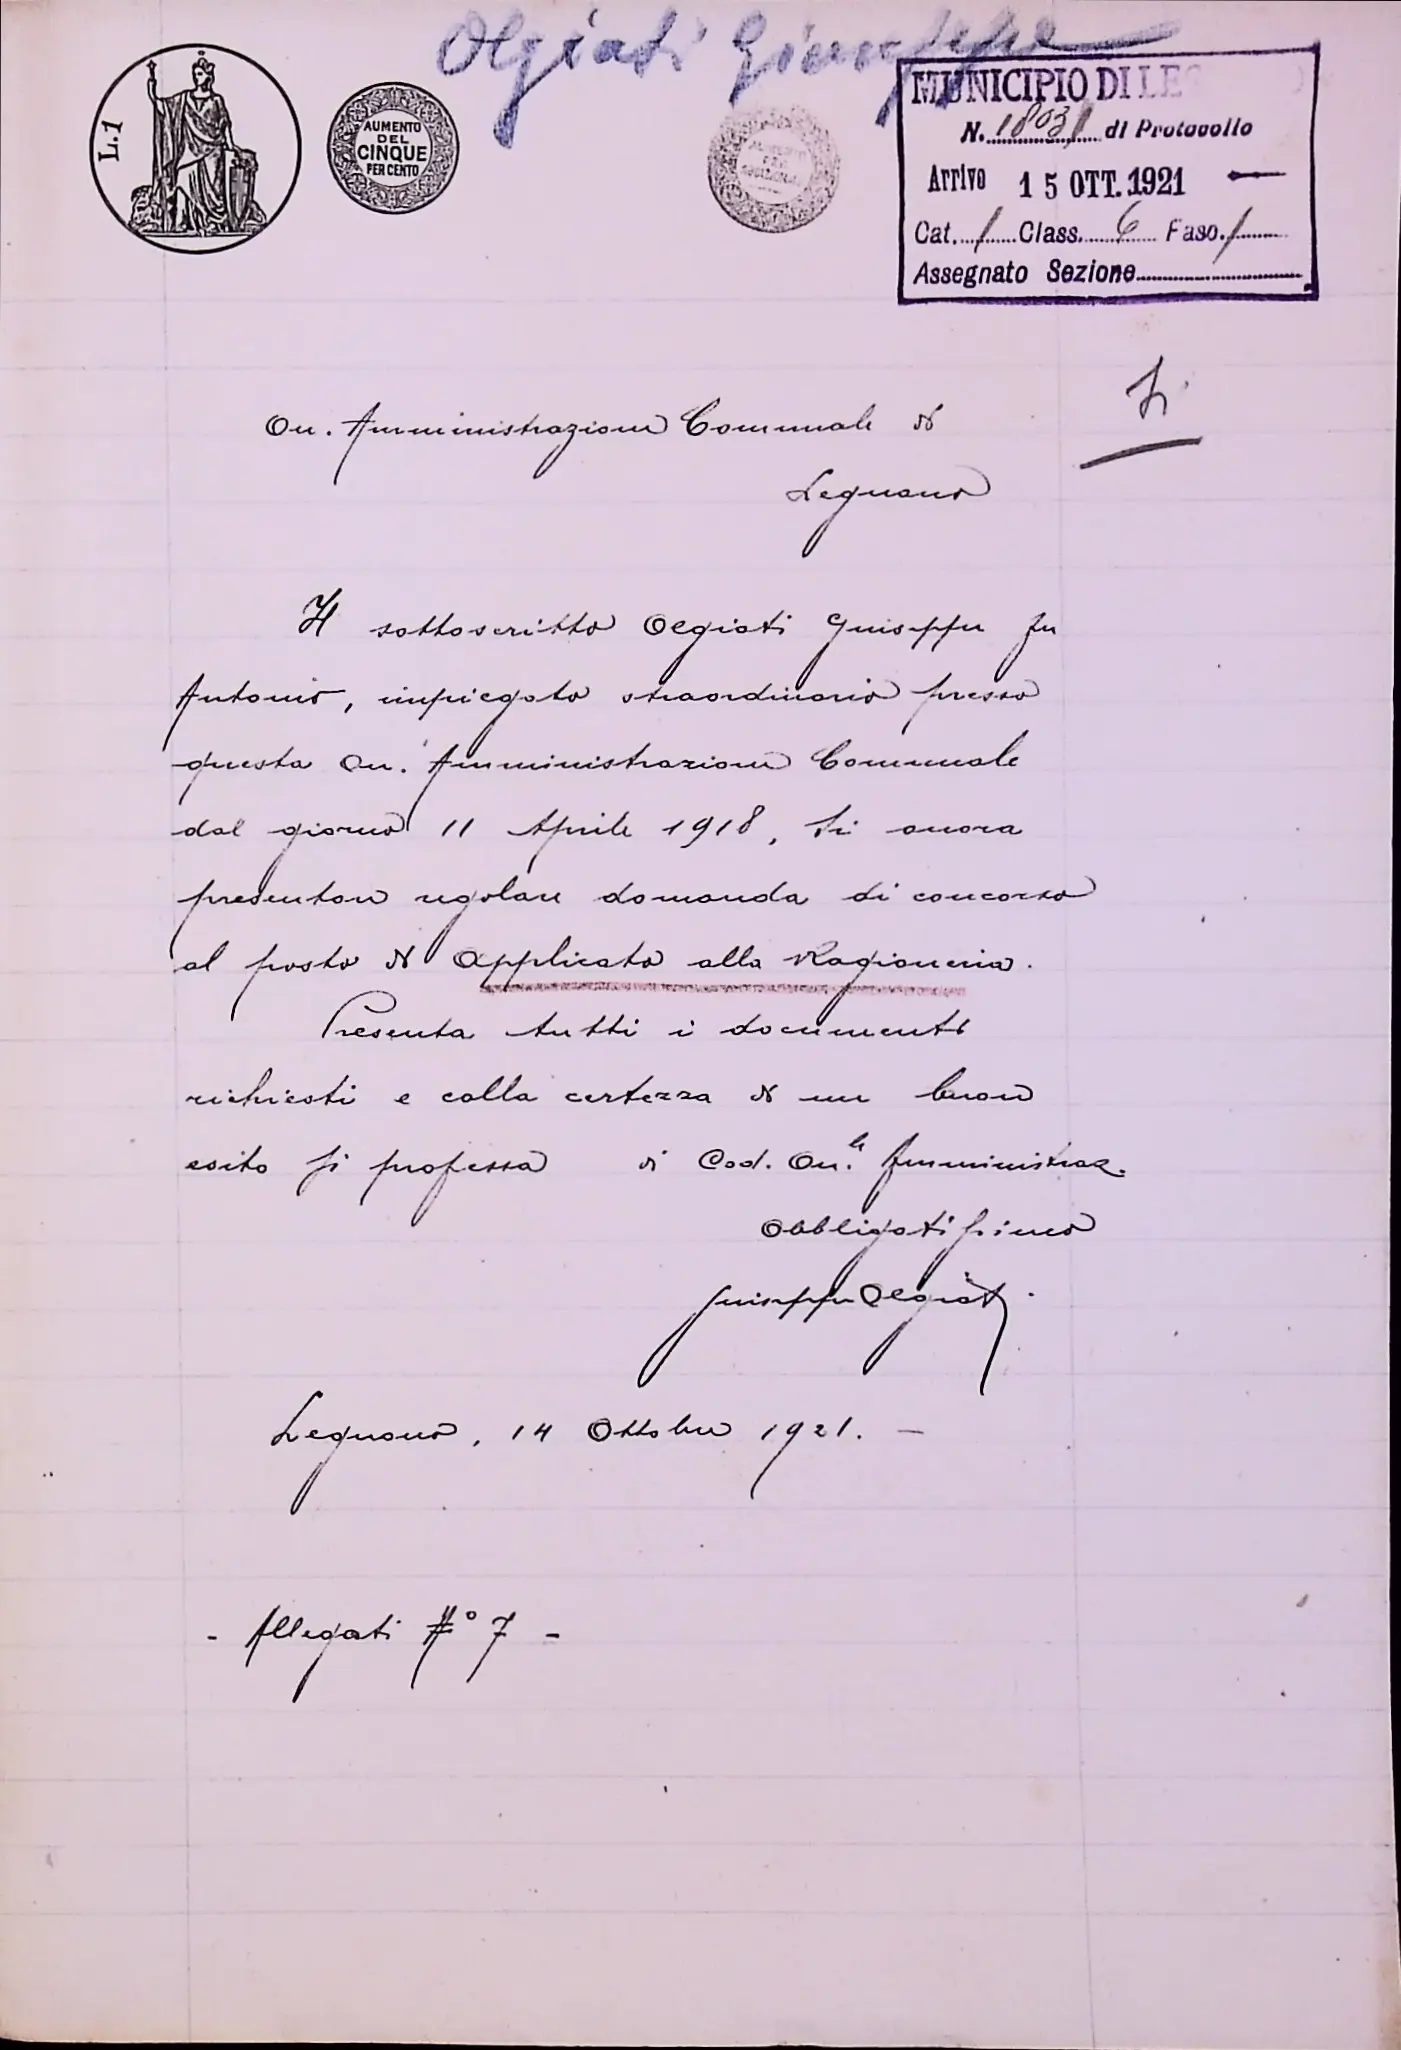 Olgiati Giuseppe
L.1
AUMENTO
DEL
CINQUE
PER CENTO
MUNICIPIO DI LEG
N. di Protocollo
Arrivo 15 OTT. 1921
Cat. 1 Class. 6 Fasc. 1
Assegnato Sezione
On. Amministrazione Comunale di
Legnano
Il sottoscritto Olgiati Giuseppe fu
Antonio, impiegato straordinario presso
questa On. Amministrazione Comunale
dal giorno 11 Aprile 1918, si onora
presentare regolare domanda di concorso
al posto di Applicato alla Ragioneria.
Presenta tutti i documenti
richiesti e colla certezza di un buon
esito si professa di Cod. On.le Amministraz.
Obbligatissimo
Giuseppe Olgiati.
Legnano, 14 Ottobre 1921. —
- Allegati No 7 -